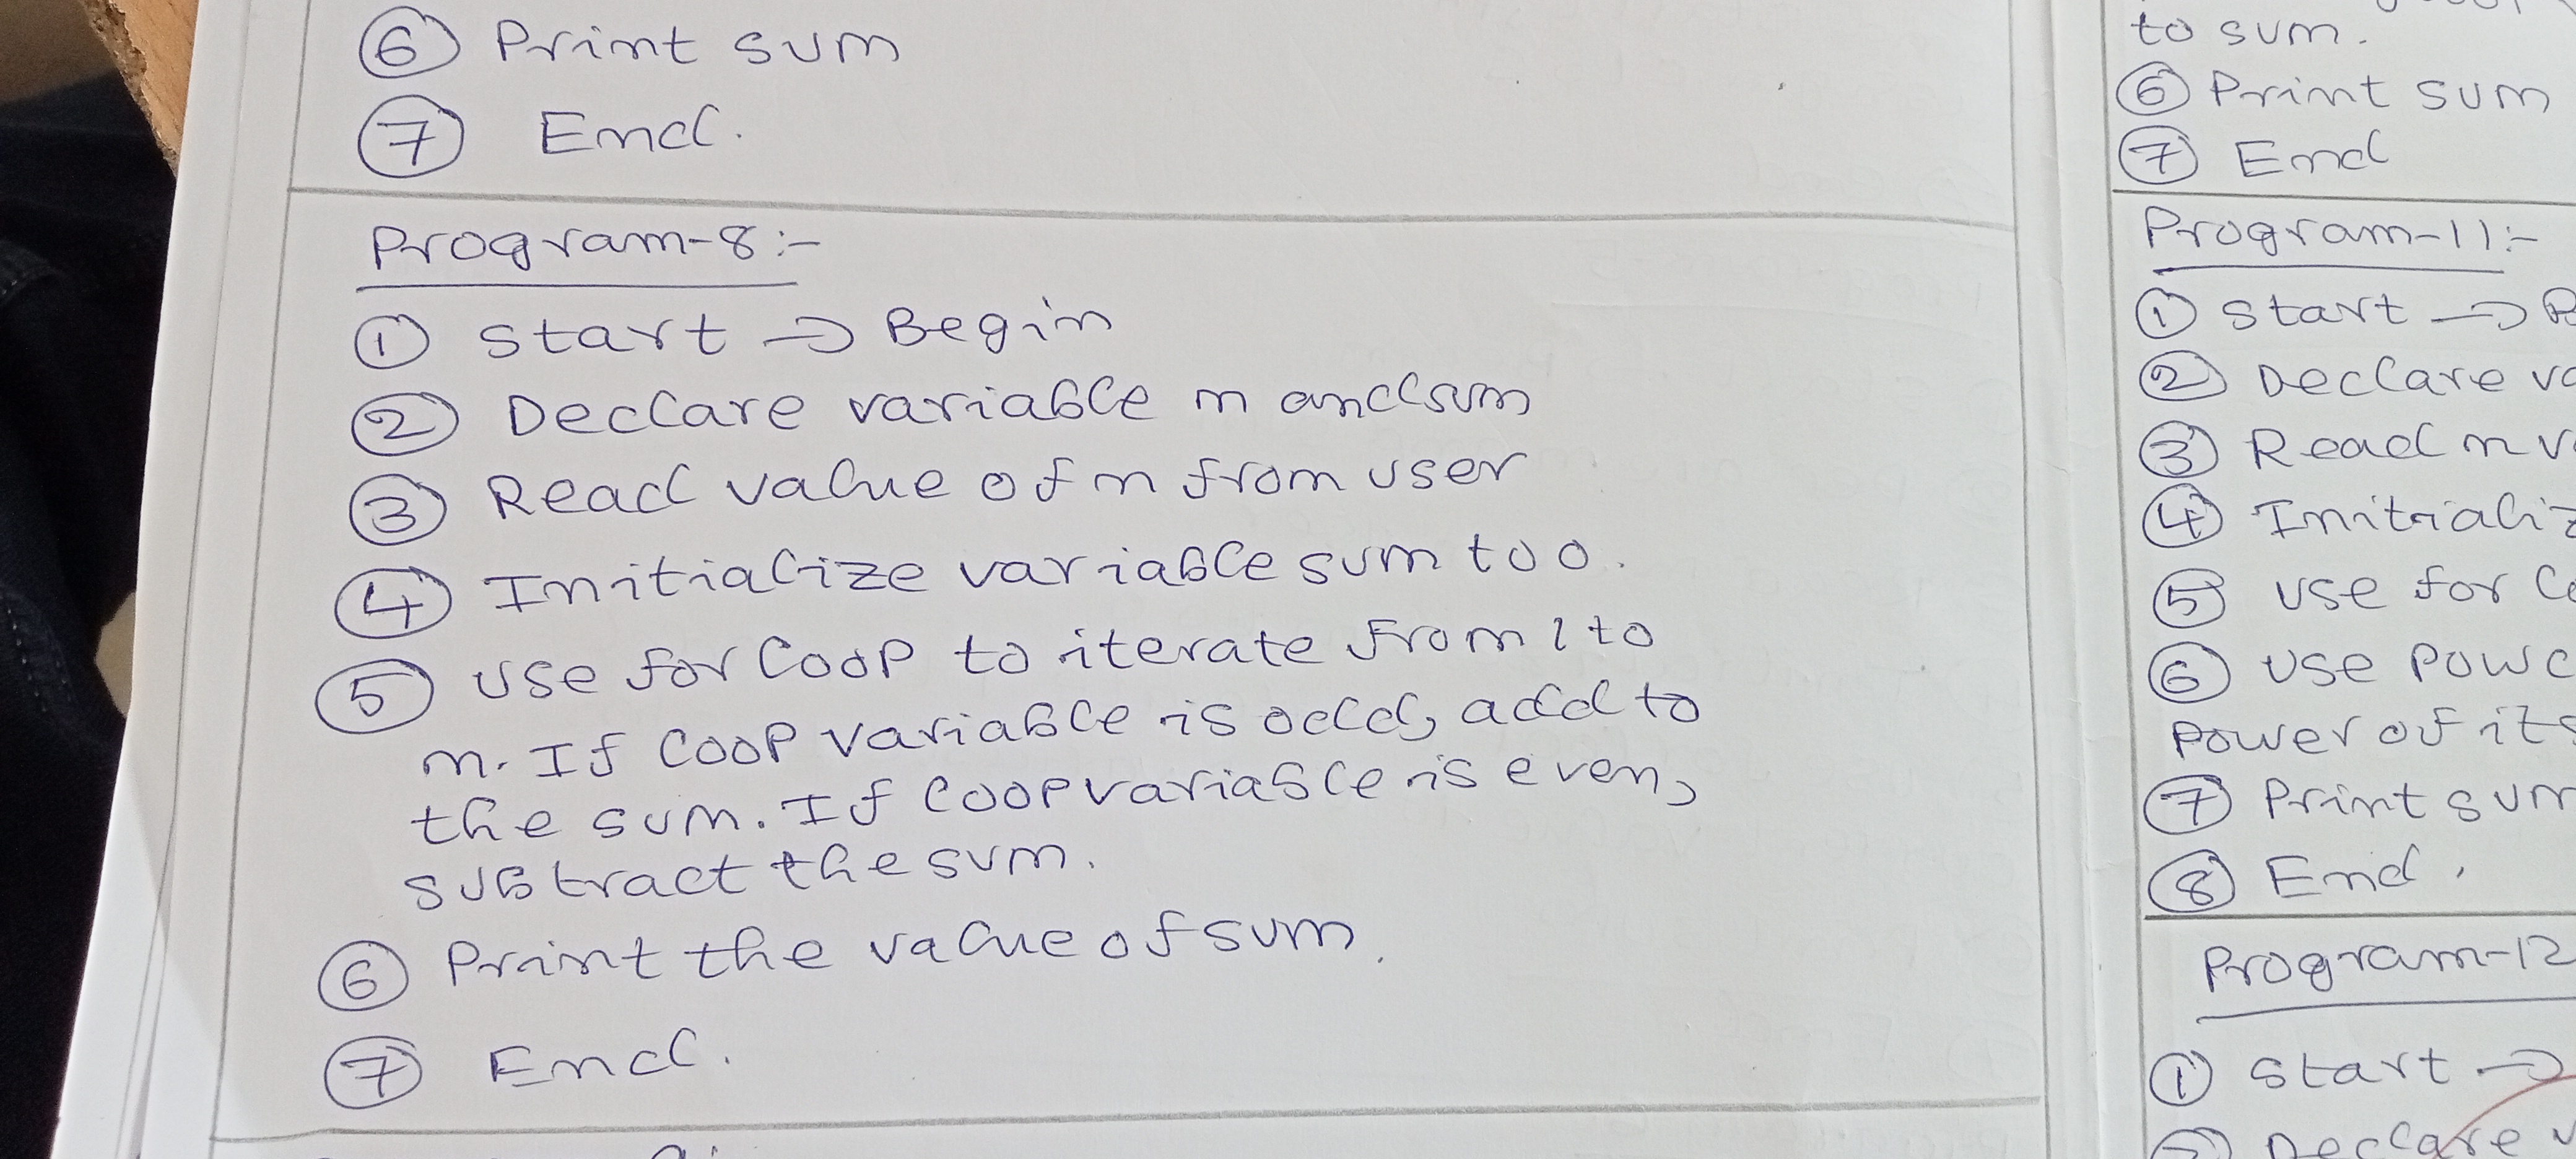 ⑥ Print sum
⑦ End.
Program-8:-
① Start → Begin
② Declare variable n and sum
③ Read value of n from user
④ Initialize variable sum to 0.
⑤ use for loop to iterate from 1 to
n. If loop variable is odd, add to
the sum. If loop variable is even,
subtract the sum.
⑥ Print the value of sum.
⑦ End.
to sum.
⑥ Print sum
⑦ End
Program-11:-
① Start →
② Declare
③ Read n
④ Initializ
⑤ use for
⑥ use pow
power of its
⑦ Print sum
⑧ End.
Program-12
① Start →
Declare